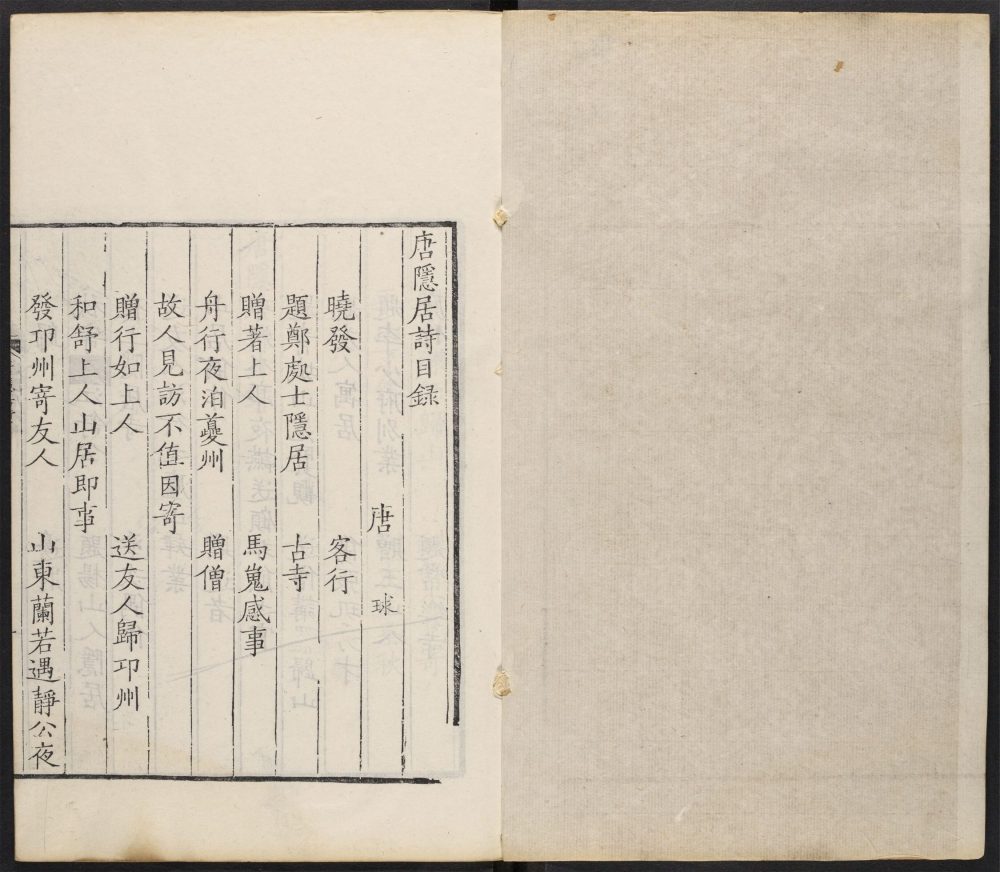 唐隱居詩目錄
唐 球
曉發 客行
題鄭處士隱居 古寺
贈著上人 馬嵬感事
舟行夜泊夔州 贈僧
故人見訪不值因寄
贈行如上人 送友人歸卭州
和舒上人山居即事
發卭州寄友人 山東蘭若遇靜公夜